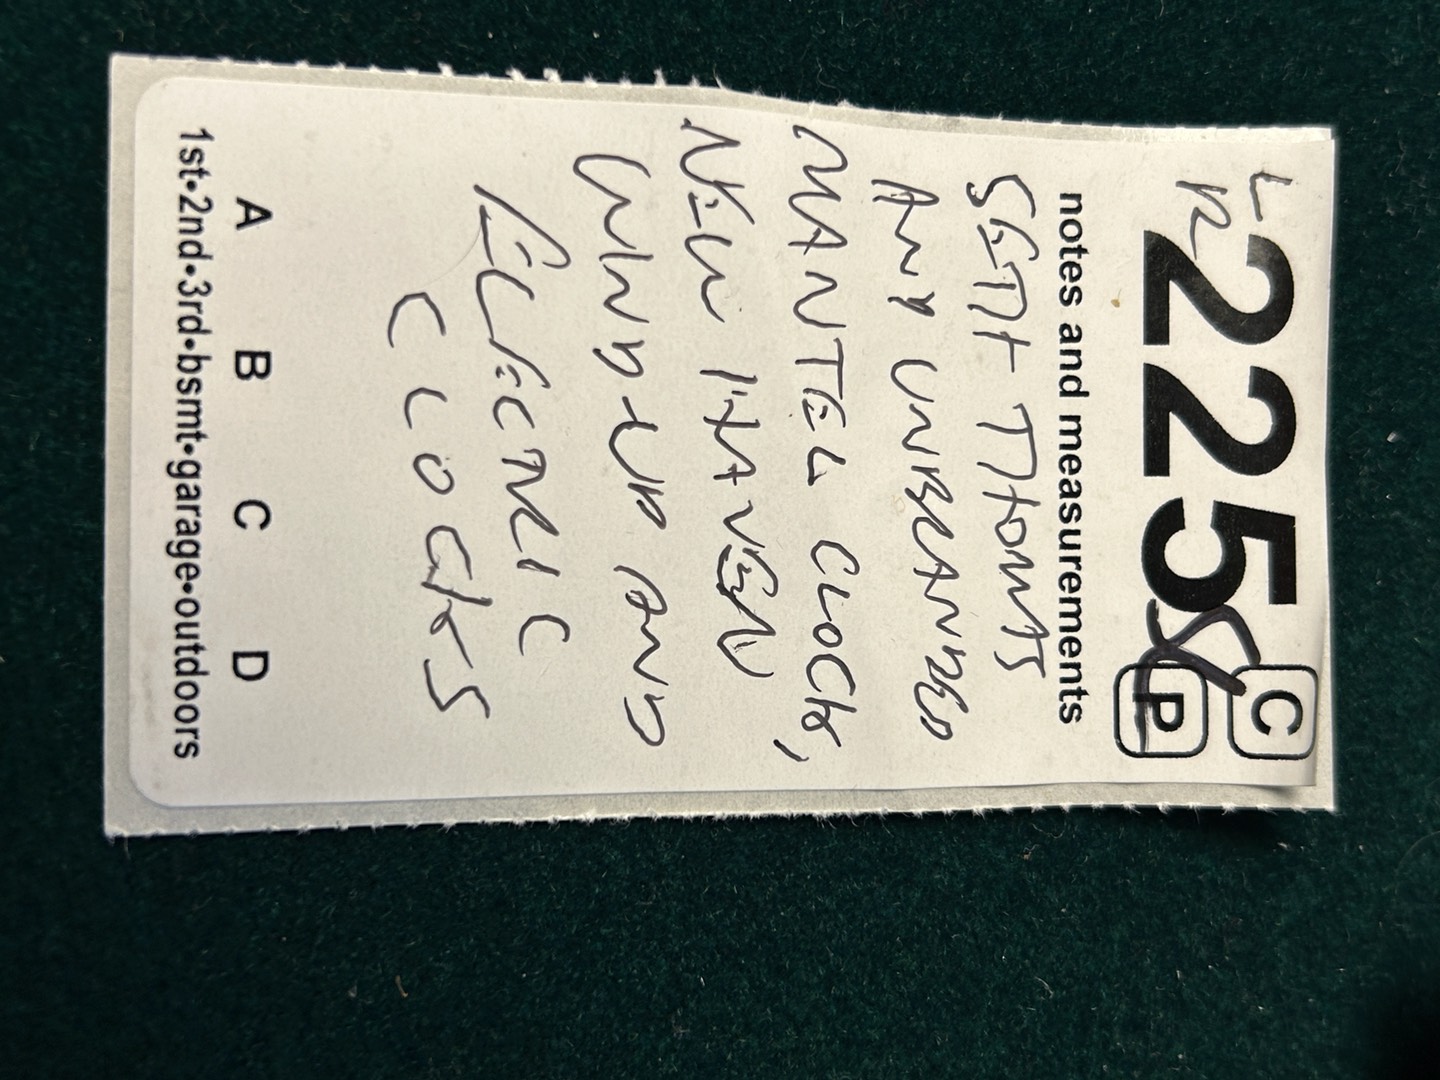 LR
225
C
P
notes and measurements
SETH THOMAS
ANY UNBRANDED
MANTEL CLOCK,
NEW HAVEN
WIND-UP AND
ELECTRIC
CLOCKS
A B C D
1st•2nd•3rd•bsmt•garage•outdoors